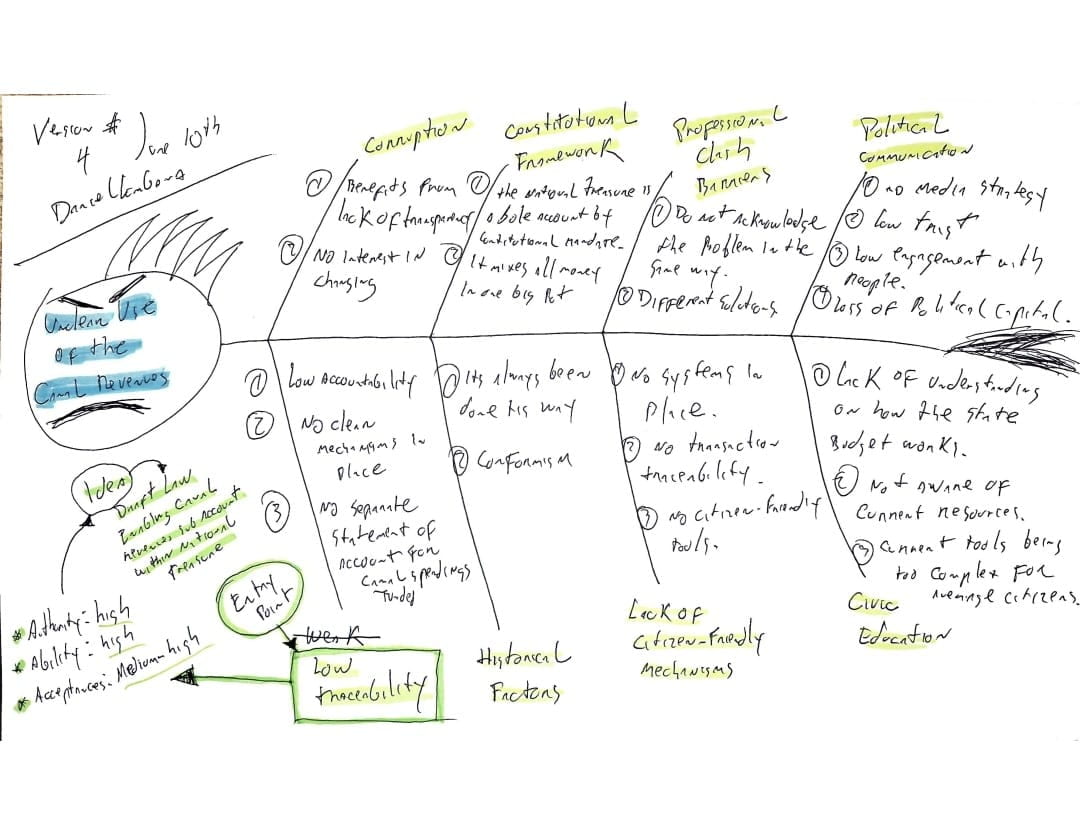 Version #
4
June 10th
Corruption
① Benefits from
lack of transparency
② No Interest in
changing
Constitutional
Framework
① the national treasure is
a sole account by
constitutional mandate.
② It mixes all money
in one big pot
Professional
Clash
Barriers
① Do not acknowledge
the problem in the
same way.
② Different solutions
Political
Communication
① no Media strategy
② Low trust
③ Low engagement with
people.
④ Loss of Political Capital.
Unclear Use
of the
Canal Revenues
① Low Accountability
② No clear
mechanisms in
place
③ No separate
statement of
account for
Canal spendings
Weak
Low
traceability
① Its always been
done his way
② Conformism
Historical
Factors
① No systems in
place.
② No transaction
traceability.
③ No citizen-friendly
tools.
Lack of
citizen-friendly
Mechanisms
① Lack of understanding
on how the state
Budget works.
② Not aware of
current resources.
③ Current tools being
too complex for
average citizens.
Civic
Education
Idea
Draft Law
Enabling Canal
revenues sub account
within National
Treasure
Entry
Point
* Authority: high
* Ability: high
* Acceptances: Medium-high